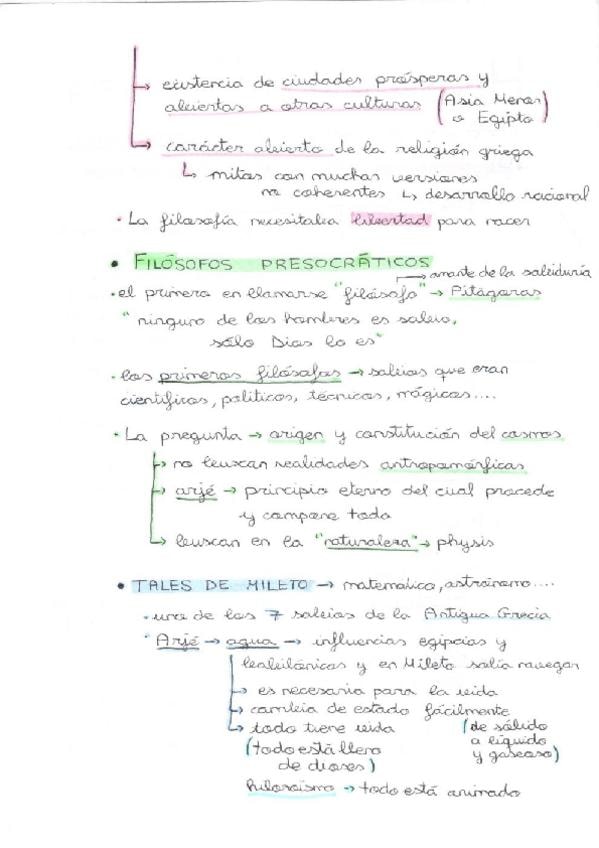 → existencia de ciudades prósperas y
abiertas a otras culturas (Asia Menor
o Egipto)
→ carácter abierto de la religión griega
↳ mitos con muchas versiones
no coherentes ↳ desarrollo racional
· La filosofía necesitaba libertad para nacer
• FILÓSOFOS PRESOCRÁTICOS
→ amante de la sabiduría
· el primero en llamarse "filósofo" → Pitágoras
"ninguno de los hombres es sabio,
sólo Dios lo es"
· los primeros filósofos → sabios que eran
científicos, políticos, técnicos, mágicos....
· La pregunta → origen y constitución del cosmos
→ no buscan realidades antropomórficas
→ arjé → principio eterno del cual procede
y compone todo
→ buscan en la "naturaleza" → physis
• TALES DE MILETO → matemático, astrónomo....
· uno de los 7 sabios de la Antigua Grecia
· Arjé → agua → influencias egipcias y
babilónicas y en Mileto sabía navegar
→ es necesaria para la vida
→ cambia de estado fácilmente
→ todo tiene vida (de sólido
(todo está lleno a líquido
de dioses) y gaseoso)
hilozoísmo → todo está animado